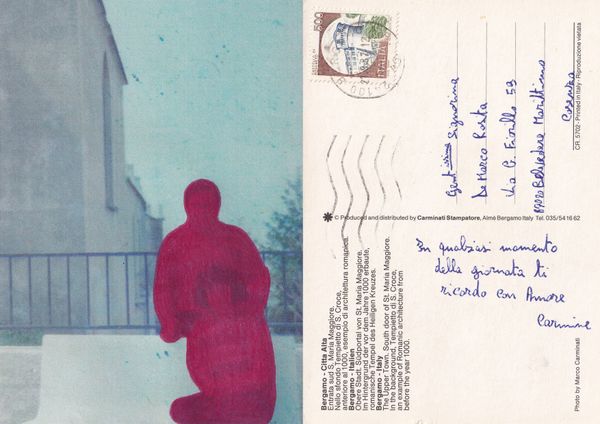 500
ITALIA
Gent.issima Signorina
De Marco Rosita
Via G. Fiorillo 53
87020 Belvedere Marittimo
Cosenza
CR. 5702 - Printed in Italy - Riproduzione vietata
© Produced and distributed by Carminati Stampatore, Almè Bergamo Italy Tel. 035/54 16 62
Bergamo - Città Alta
Entrata sud S. Maria Maggiore.
Nello sfondo Tempietto di S. Croce,
anteriore al 1000, esempio di architettura romanica.
Bergamo - Italien
Obere Stadt. Südportal von St. Maria Maggiore.
Im Hintergrund der vor dem Jahre 1000 erbaute,
romanische Tempel des Heiligen Kreuzes.
Bergamo - Italy
The Upper Town. South door of St. Maria Maggiore.
In the background, Tempietto of S. Croce,
an example of Romanic architecture from
before the year 1000.
In qualsiasi momento
della giornata ti
ricordo con Amore
Carmine
Photo by Marco Carminati